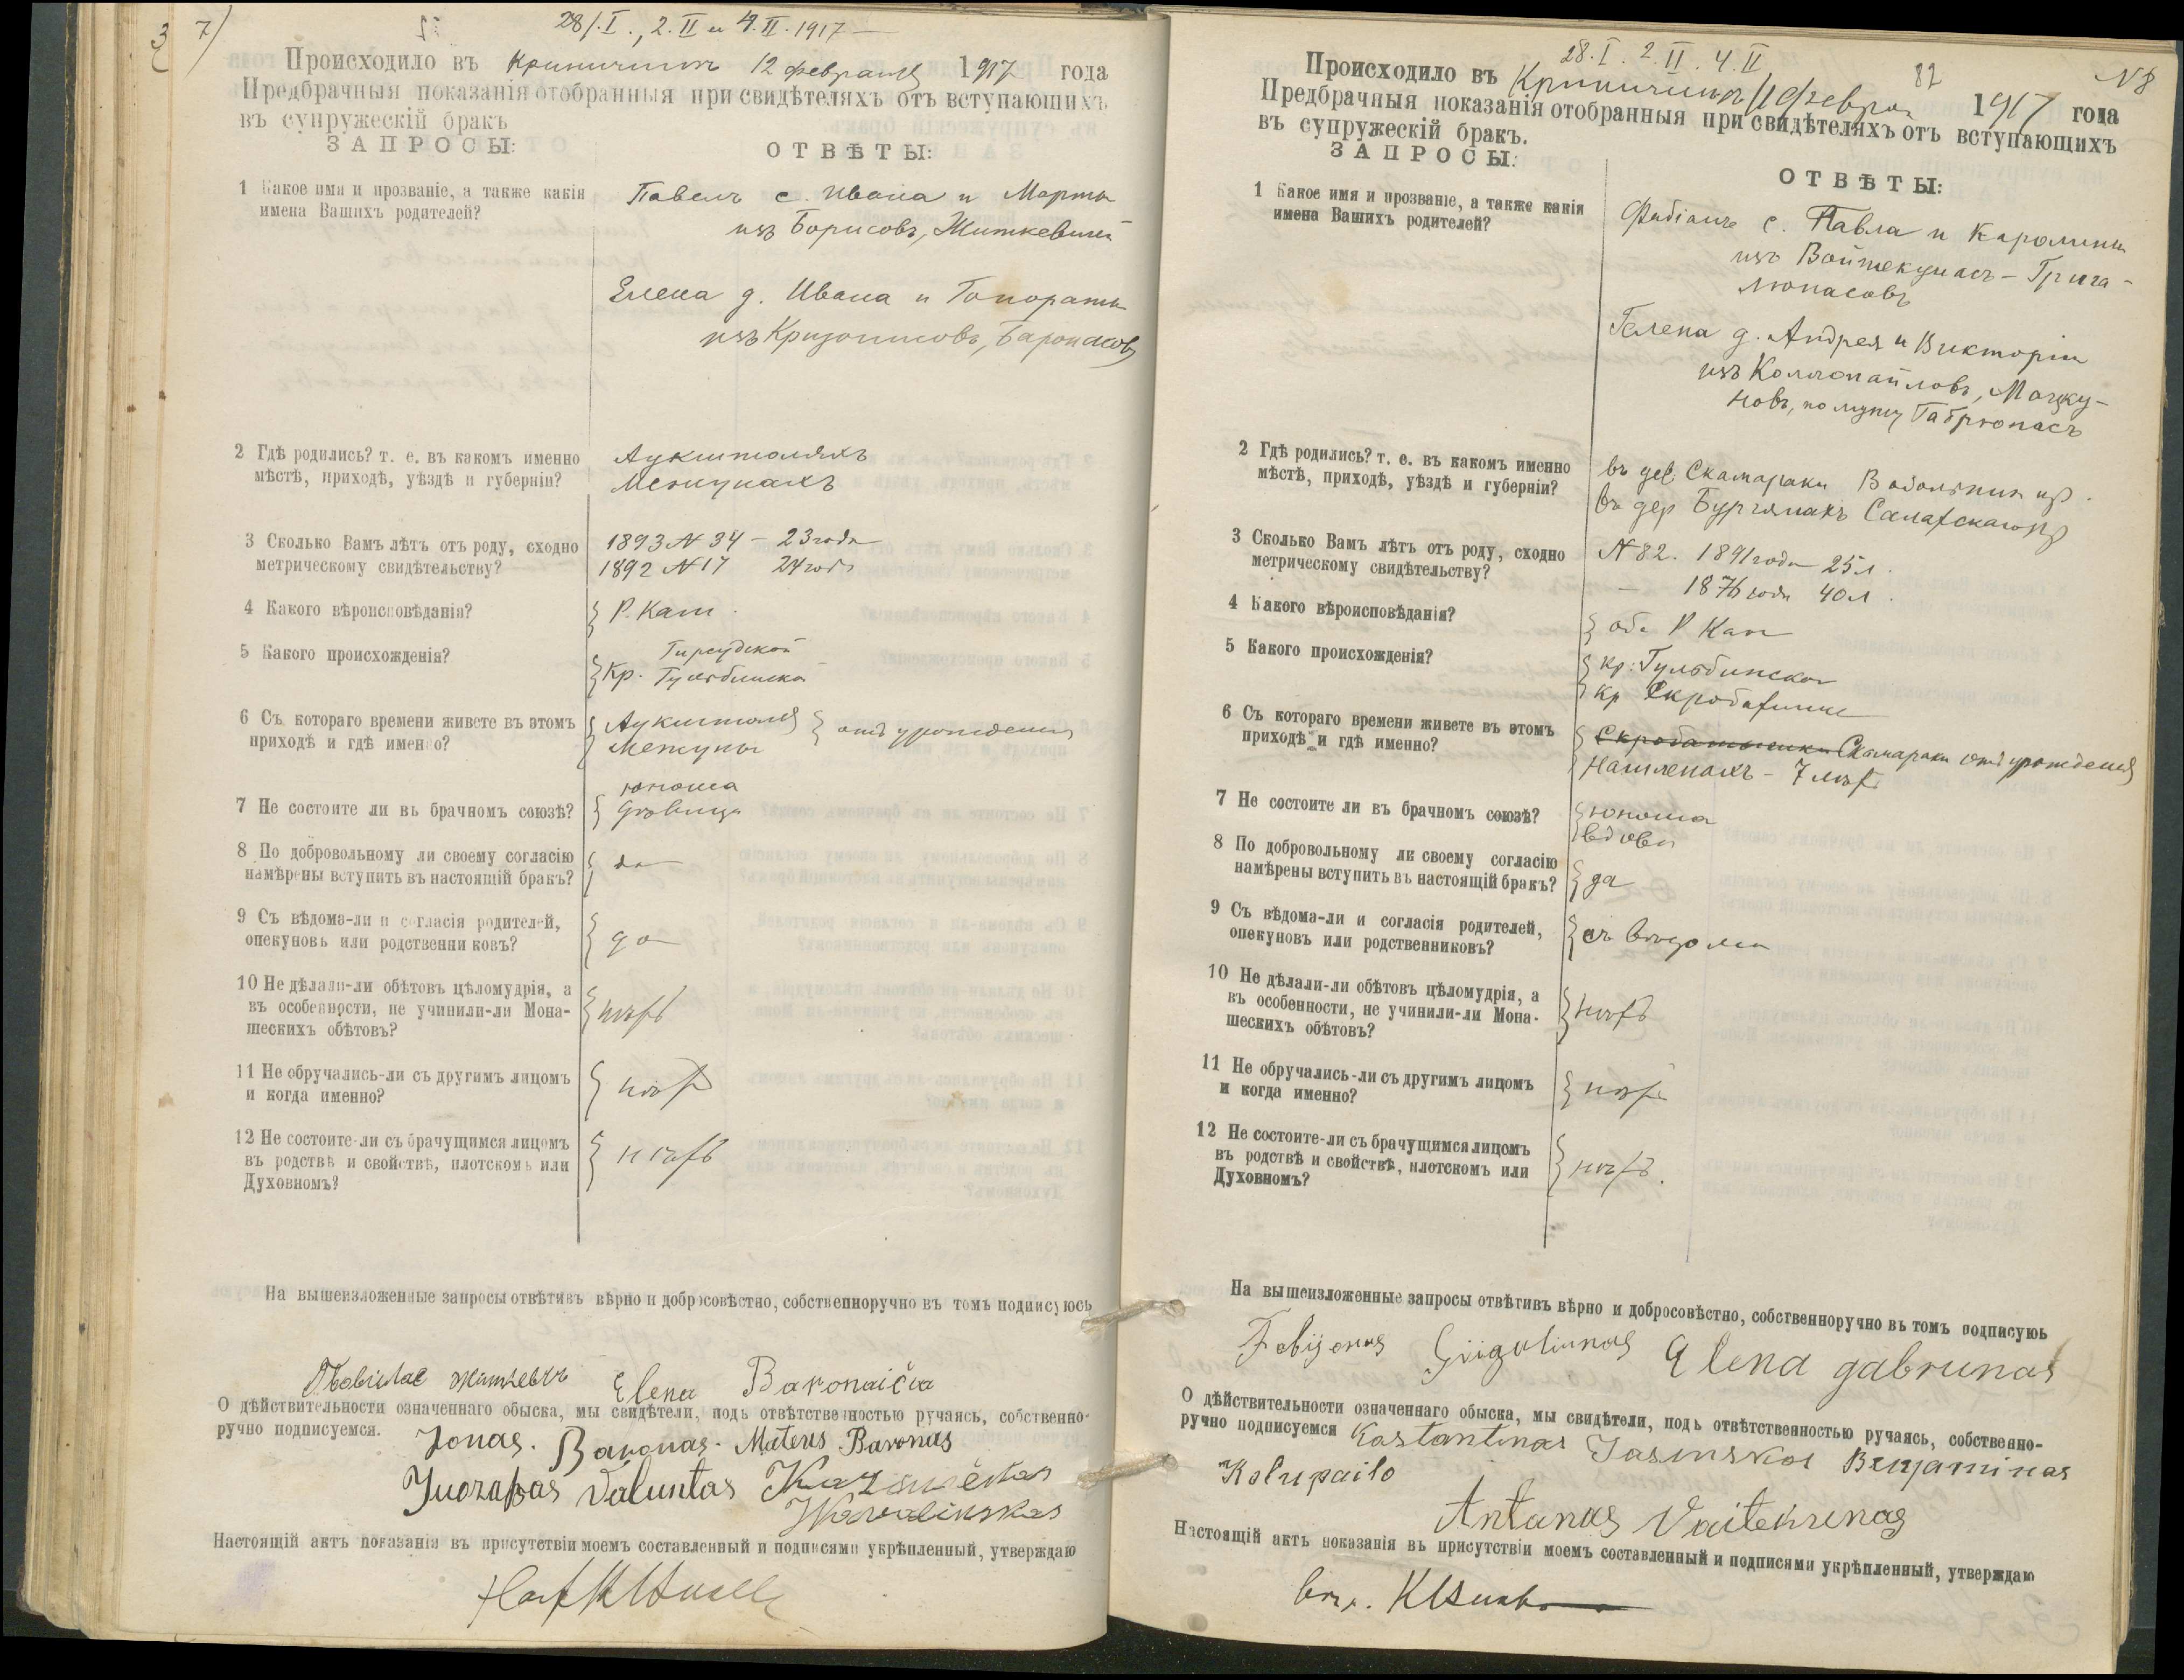 3 7)
28/.I., 2.II и 4.II.1917
Происходило въ Криничинъ 12 февраля 1917 года
Предбрачныя показанія отобранныя при свидѣтеляхъ отъ вступающихъ
въ супружескій бракъ
ЗАПРОСЫ: ОТВѢТЫ:
1 Какое имя и прозваніе, а также какія
имена Вашихъ родителей?
Павелъ с. Ивана и Марты
изъ Борисовъ, Житкевичей
Елена д. Ивана и
изъ Баронасовъ
2 Гдѣ родились? т. е. въ какомъ именно
мѣстѣ, приходѣ, уѣздѣ и губерніи?
Аукштоляхъ
Межунахъ
3 Сколько Вамъ лѣтъ отъ роду, сходно
метрическому свидѣтельству?
1893 N 34 - 23 года
1892 N 17 24 года
4 Какого вѣроисповѣданія?
Р. Кат.
5 Какого происхожденія?
Кр.
6 Съ котораго времени живете въ этомъ
приходѣ и гдѣ именно?
Аукштоля
Межуны
отъ урожденія
7 Не состоите ли въ брачномъ союзѣ?
юноша
дѣвица
8 По добровольному ли своему согласію
намѣрены вступить въ настоящій бракъ?
да
9 Съ вѣдома-ли и согласія родителей,
опекуновъ или родственни ковъ?
да
10 Не дѣлали-ли обѣтовъ цѣломудрія, а
въ особенности, не учинили-ли Мона-
шескихъ обѣтовъ?
нѣтъ
11 Не обручались-ли съ другимъ лицомъ
и когда именно?
нѣтъ
12 Не состоите-ли съ брачущимся лицомъ
въ родствѣ и свойствѣ, плотскомъ или
Духовномъ?
нѣтъ
На вышеизложенные запросы отвѣтивъ вѣрно и добросовѣстно, собственноручно въ томъ подписуюсь
Elena Baronaičia
О дѣйствительности означеннаго обыска, мы свидѣтели, подъ отвѣтственностью ручаясь, собственно-
ручно подписуемся.
Jonas. Baronas. Mateus Baronas
Juozapas Valuntas
Настоящій актъ показанія въ присутствіи моемъ составленный и подписями укрѣпленный, утверждаю
28.I. 2.II. 4.II
82 N 8
Происходило въ Криничинъ 1917 года
Предбрачныя показанія отобранныя при свидѣтеляхъ отъ вступающихъ
въ супружескій бракъ.
ЗАПРОСЫ: ОТВѢТЫ:
1 Какое имя и прозваніе, а также какія
имена Вашихъ родителей?
Фабіанъ с. Павла и Каролины
изъ Войтекунасъ - Грига-
люнасовъ
Гелена д. Андрея и Викторіи
изъ Колюпайловъ, Мацку-
новъ, по мужу Габрюнасъ
2 Гдѣ родились? т. е. въ какомъ именно
мѣстѣ, приходѣ, уѣздѣ и губерніи?
въ дер. Скамараки
въ дер.
3 Сколько Вамъ лѣтъ отъ роду, сходно
метрическому свидѣтельству?
N 82. 1891 года 25 л.
— 1876 года 40 л.
4 Какого вѣроисповѣданія?
оба Р Кат
5 Какого происхожденія?
кр: Гульбинской
кр
6 Съ котораго времени живете въ этомъ
приходѣ и гдѣ именно?
Скамараки отъ урожденія
- 7 лѣтъ
7 Не состоите ли въ брачномъ союзѣ?
юноша
вдова
8 По добровольному ли своему согласію
намѣрены вступить въ настоящій бракъ?
да
9 Съ вѣдома-ли и согласія родителей,
опекуновъ или родственниковъ?
съ вѣдома
10 Не дѣлали-ли обѣтовъ цѣломудрія, а
въ особенности, не учинили-ли Мона-
шескихъ обѣтовъ?
нѣтъ
11 Не обручались-ли съ другимъ лицомъ
и когда именно?
нѣтъ
12 Не состоите-ли съ брачущимся лицомъ
въ родствѣ и свойствѣ, плотскомъ или
Духовномъ?
нѣтъ.
На вышеизложенные запросы отвѣтивъ вѣрно и добросовѣстно, собственноручно въ томъ подписуюь
Fabijonas Grigoliunas Elena gabrunas
О дѣйствительности означеннаго обыска, мы свидѣтели, подъ отвѣтственностью ручаясь, собственно-
ручно подписуемся Kastantinas Jasinskos Benjaminas
Kolupailo
Antanas Vaitekunas
Настоящій актъ показанія въ присутствіи моемъ составленный и подписями укрѣпленный, утверждаю